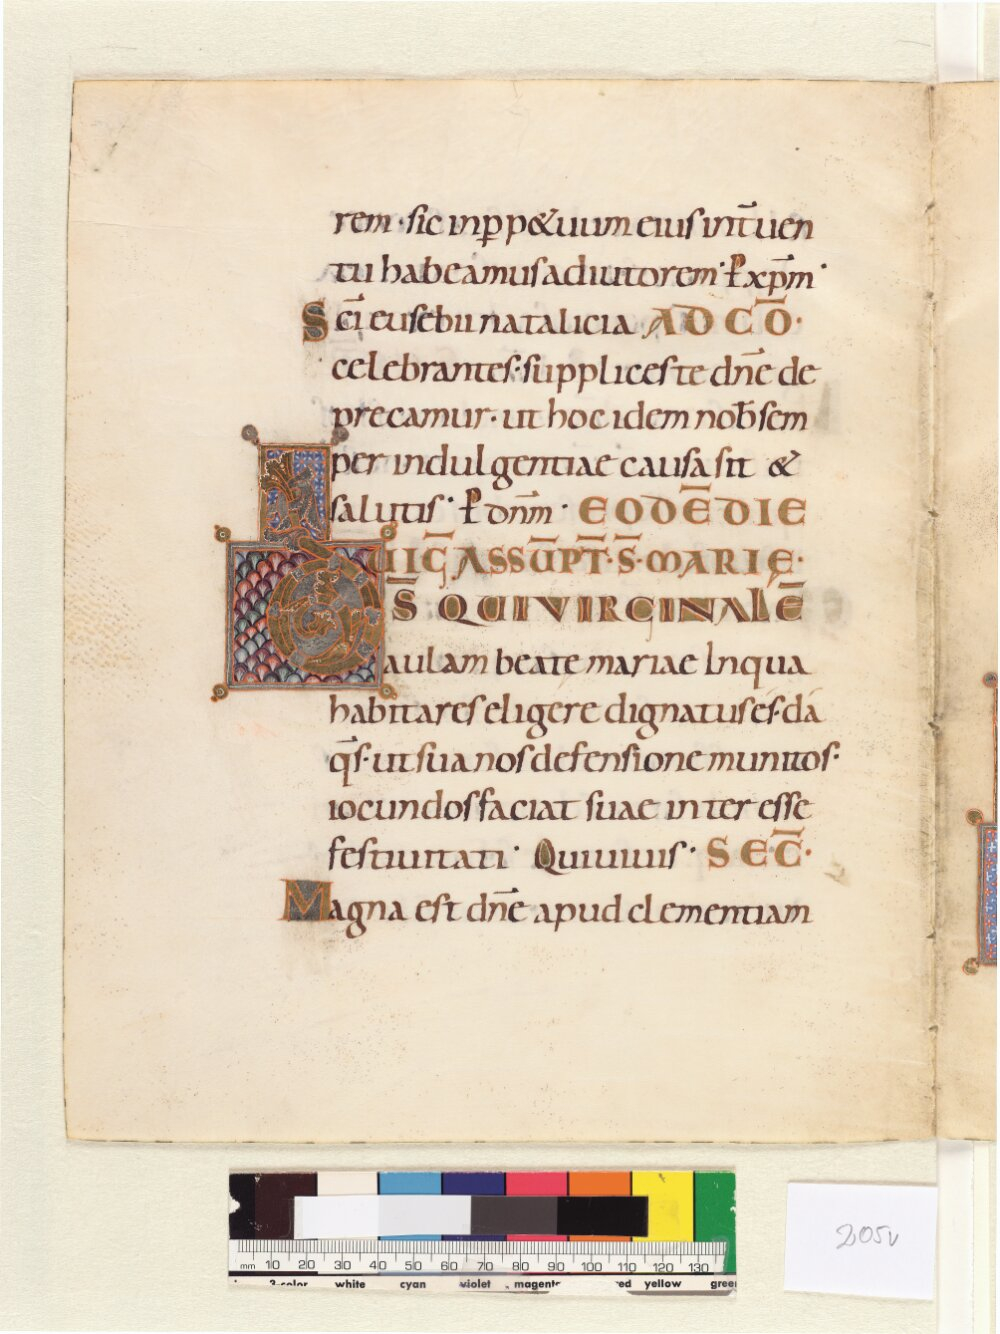 rem · sic inp̲p&uum eius int̄uen
tu habeamus adiutorem · P̲ xp̄m ·
Sc̄i eusebii natalicia AD CŌ ·
celebrantes · supplices te dn̄e de
precamur · ut hoc idem nob̄ sem
per indulgentiae causa sit &
salutis · P̲ dn̄m · EODĒ DIE
UIG̅ ASSŪPT̅ · S̅ · MARIE ·
DS̅ QUI VIRGINALĒ
aulam beate mariae Inqua
habitares eligere dignatus es · da
q̄s · ut sua nos defensione munitos ·
iocundos faciat suae inter esse
festiuitati · Qui uiuis · SEC̅ ·
Magna est dn̄e apud clementiam
205v
mm 10 20 30 40 50 60 70 80 90 100 110 120 130
3-color white cyan violet magenta red yellow green